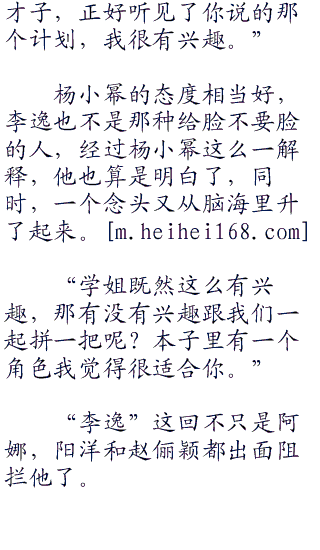 才子，正好听见了你说的那
个计划，我很有兴趣。”
杨小幂的态度相当好，
李逸也不是那种给脸不要脸
的人，经过杨小幂这么一解
释，他也算是明白了，同
时，一个念头又从脑海里升
了起来。[m.heihei168.com]
“学姐既然这么有兴
趣，那有没有兴趣跟我们一
起拼一把呢？本子里有一个
角色我觉得很适合你。”
“李逸”这回不只是阿
娜，阳洋和赵俪颖都出面阻
拦他了。